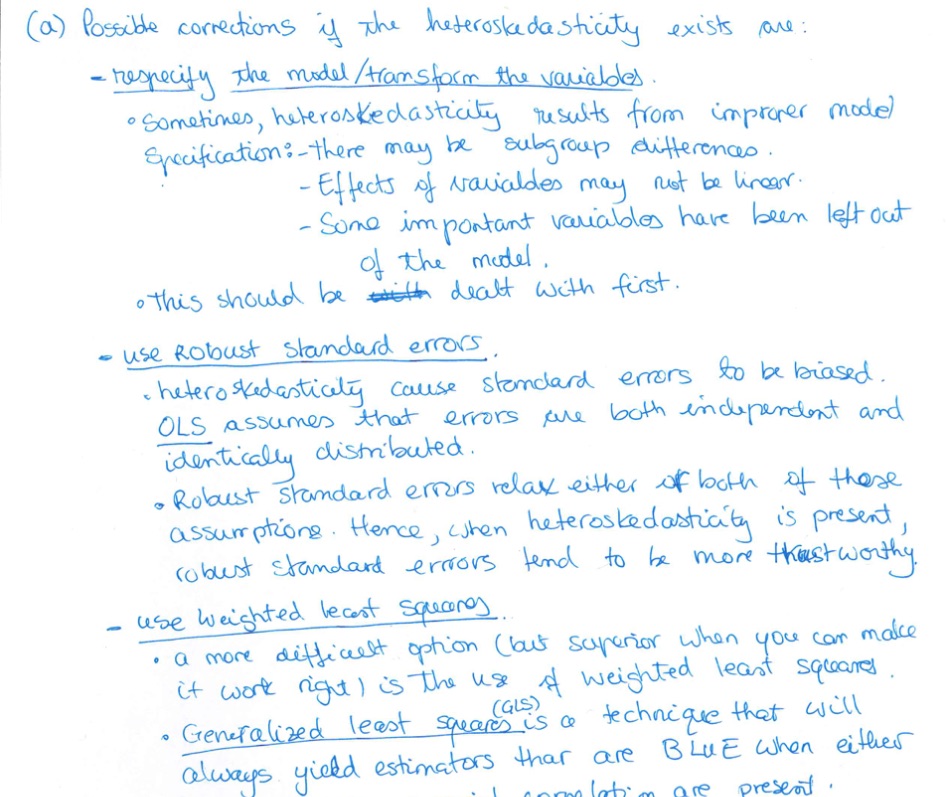 (a) Possible corrections if the heteroskedasticity exists are:
- respecify the model/transform the variables.
° Sometimes, heteroskedasticity results from improper model
Specification:- there may be subgroup differences.
- Effects of variables may not be linear.
- Some important variables have been left out
of the model.
° this should be with dealt with first.
- use Robust standard errors.
• heteroskedasticity cause standard errors to be biased.
OLS assumes that errors are both independent and
identically distributed.
• Robust standard errors relax either of both of those
assumptions. Hence, when heteroskedasticity is present,
robust standard errors tend to be more trustworthy.
- use weighted least squares.
• a more difficult option (but superior when you can make
it work right) is the use of weighted least squares.
• Generalized least squares (GLS) is a technique that will
always yield estimators that are BLUE when either
correlation are present.